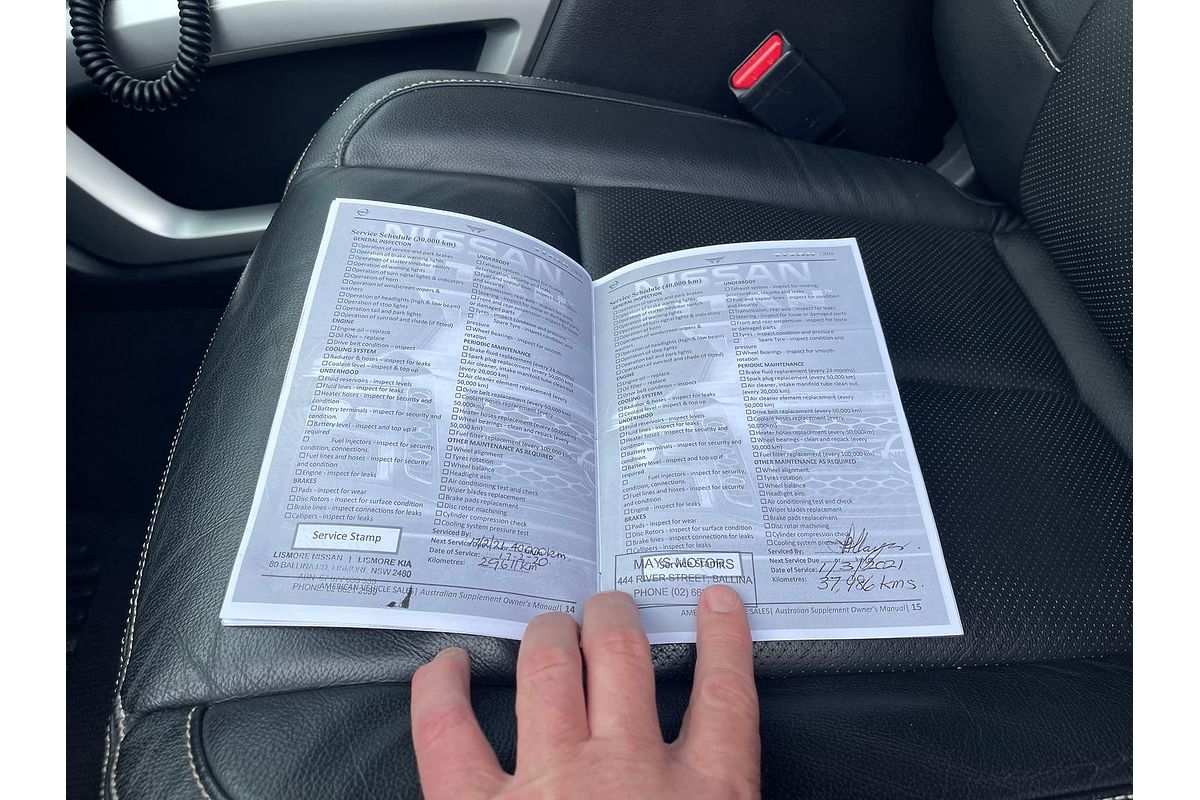 NISSAN
Service Schedule (30,000 km)
GENERAL INSPECTION
Operation of service and park brakes
Operation of brake warning lights
Operation of starter inhibitor switch
Operation of warning lights
Operation of turn signal lights & indicators
Operation of horn
Operation of windscreen wipers &
washers
Operation of headlights (high & low beam)
Operation of stop lights
Operation tail and park lights
Operation of sunroof and shade (if fitted)
ENGINE
Engine oil – replace
Oil filter – replace
Drive belt condition – inspect
COOLING SYSTEM
Radiator & hoses – inspect for leaks
Coolant level – inspect & top up
UNDERHOOD
Fluid reservoirs - inspect levels
Fluid lines - inspect for leaks
Heater hoses - inspect for security and
condition
Battery terminals - inspect for security and
condition.
Battery level - inspect and top up if
required
Fuel Injectors - inspect for security,
condition, connections.
Fuel lines and hoses - inspect for security
and condition
Engine - inspect for leaks
BRAKES
Pads - inspect for wear
Disc Rotors - inspect for surface condition
Brake lines - inspect connections for leaks
Callipers - inspect for leaks
Service Stamp
LISMORE NISSAN | LISMORE KIA
80 BALLINA RD, LISMORE, NSW 2480
UNDERBODY
Exhaust system - inspect for
Wheel Bearings - inspect for smooth
rotation
PERIODIC MAINTENANCE
Brake fluid replacement (every 24 months)
Spark plug replacement (every 50,000 km)
Air cleaner, intake manifold tube clean out
(every 20,000 km)
Air cleaner element replacement (every
50,000 km)
Drive belt replacement (every 50,000km)
Coolant hoses replacement (every
50,000km)
Heater hoses replacement (every 50,000km)
Wheel bearings - clean and repack (every
50,000 km)
Fuel filter replacement (every 100,000 km)
OTHER MAINTENANCE AS REQUIRED
Wheel alignment
Tyres rotation
Wheel balance
Headlight aim
Air conditioning test and check
Wiper blades replacement
Brake pads replacement
Disc rotor machining
Cylinder compression check
Cooling system pressure test
Serviced By:
Next Service Due 40,000km
Date of Service: 17-2-20
Kilometres: 29,611km
AMERICAN VEHICLE SALES| Australian Supplement Owner's Manual| 14
2018
NISSAN
Service Schedule (40,000 km)
GENERAL INSPECTION
Operation of service and park brakes
Operation of brake warning lights
Operation of starter inhibitor switch
Operation of warning lights
Operation of turn signal lights & indicators
Operation of horn
Operation of windscreen wipers &
washers
Operation of headlights (high & low beam)
Operation of stop lights
Operation tail and park lights
Operation of sunroof and shade (if fitted)
ENGINE
Engine oil – replace
Oil filter – replace
Drive belt condition – inspect
COOLING SYSTEM
Radiator & hoses – inspect for leaks
Coolant level – inspect & top up
UNDERHOOD
Fluid reservoirs - inspect levels
Fluid lines - inspect for leaks
Heater hoses - inspect for security and
condition
Battery terminals - inspect for security and
condition.
Battery level - inspect and top up if
required
Fuel Injectors - inspect for security,
condition, connections.
Fuel lines and hoses - inspect for security
and condition
Engine - inspect for leaks
BRAKES
Pads - inspect for wear
Disc Rotors - inspect for surface condition
Brake lines - inspect connections for leaks
Callipers - inspect for leaks
Service Stamp
MAYS MOTORS
444 RIVER STREET, BALLINA
PHONE (02) 66
UNDERBODY
Exhaust system - inspect for routing,
deterioration, security and leaks
Fuel and vapour lines - inspect for condition
and security
Transmission, rear axle - inspect for leaks
Steering - inspect for loose or damaged parts
Front and rear suspension - inspect for loose
or damaged parts
Tyres - inspect condition and pressure
Spare Tyre - inspect condition and
pressure
Wheel Bearings - inspect for smooth
rotation
PERIODIC MAINTENANCE
Brake fluid replacement (every 24 months)
Spark plug replacement (every 50,000 km)
Air cleaner, intake manifold tube clean out
(every 20,000 km)
Air cleaner element replacement (every
50,000 km)
Drive belt replacement (every 50,000km)
Coolant hoses replacement (every
50,000km)
Heater hoses replacement (every 50,000km)
Wheel bearings - clean and repack (every
50,000 km)
Fuel filter replacement (every 100,000 km)
OTHER MAINTENANCE AS REQUIRED
Wheel alignment
Tyres rotation
Wheel balance
Headlight aim
Air conditioning test and check
Wiper blades replacement
Brake pads replacement
Disc rotor machining
Cylinder compression check
Cooling system pressure
Serviced By:
Next Service Due
Date of Service: 1/3/2021
Kilometres: 37,986 kms.
AMERICAN VEHICLE SALES| Australian Supplement Owner's Manual| 15